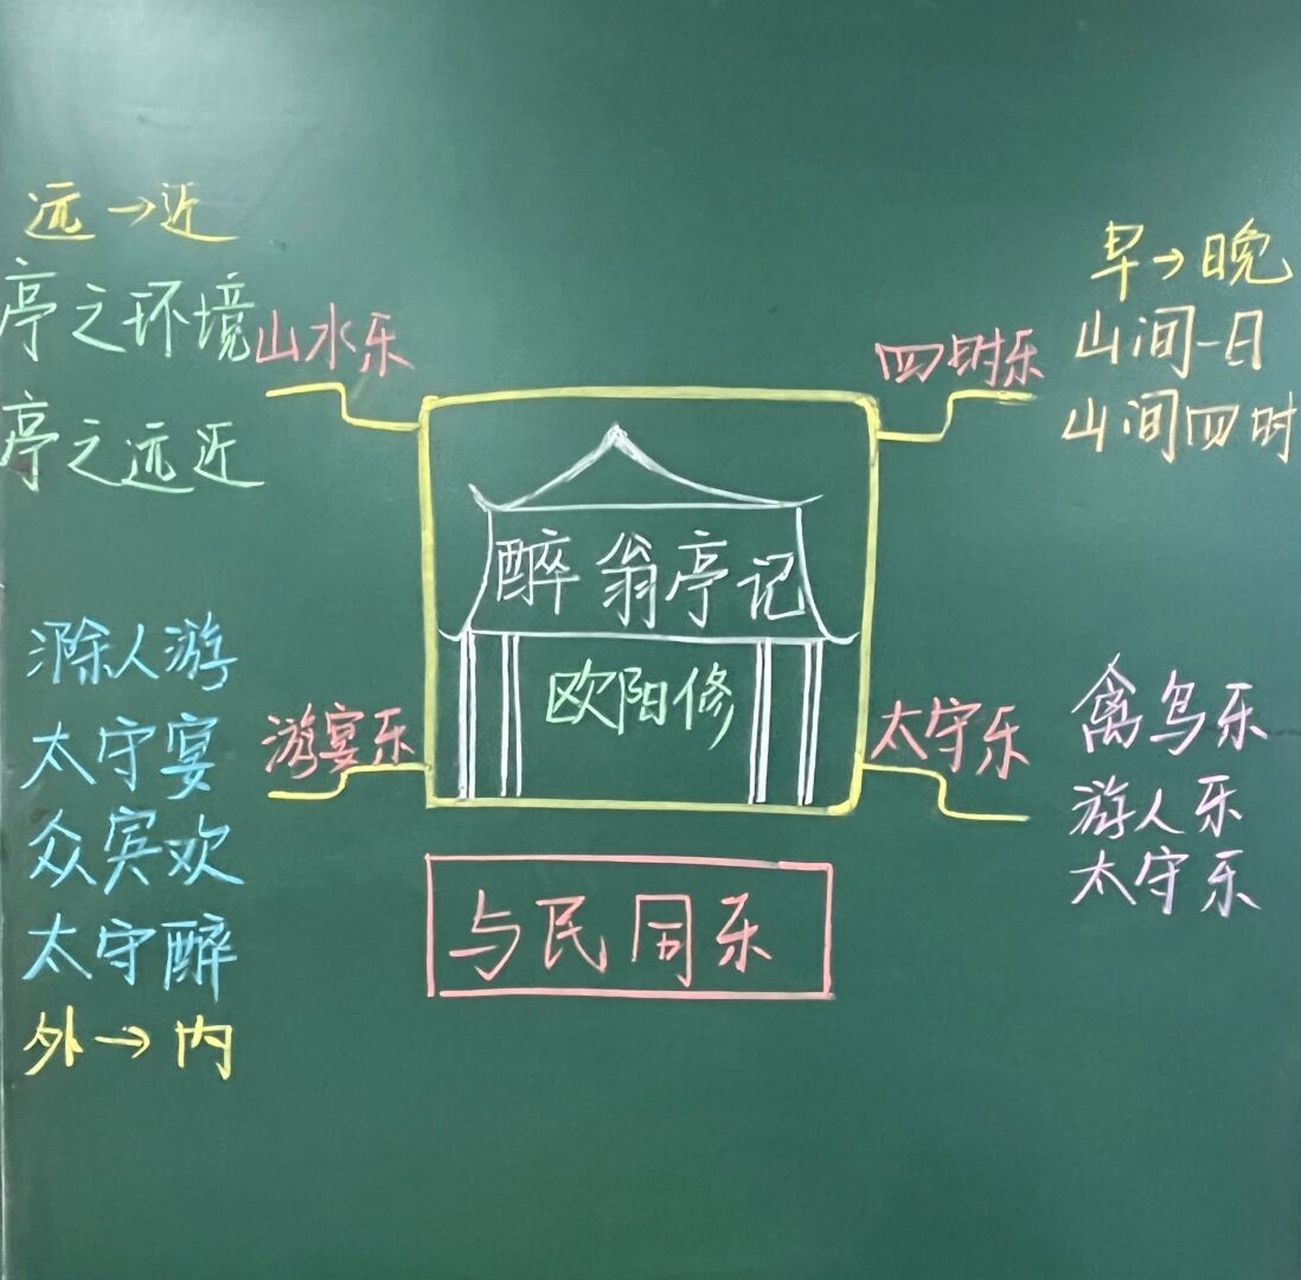 远→近
亭之环境
亭之远近
山水乐
早→晚
山间一日
山间四时
四时乐
醉翁亭记
欧阳修
滁人游
太守宴
众宾欢
太守醉
外→内
游宴乐
太守乐
禽鸟乐
游人乐
太守乐
与民同乐